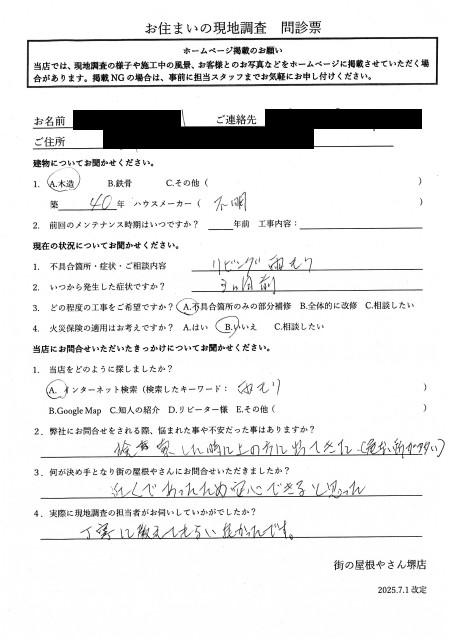 お住まいの現地調査 問診票
ホームページ掲載のお願い
当店では、現地調査の様子や施工中の風景、お客様とのお写真などをホームページに掲載させていただく場
合があります。掲載NGの場合は、事前に担当スタッフまでお気軽にお申し付けください。
お名前 ご連絡先
ご住所
建物についてお聞かせください。
1. A.木造 B.鉄骨 C.その他( )
築 40 年 ハウスメーカー( 不明 )
2. 前回のメンテナンス時期はいつですか? 年前 工事内容:
現在の状況についてお聞かせください。
1. 不具合箇所・症状・ご相談内容 リビング 雨もり
2. いつから発生した症状ですか? 3ヶ月前
3. どの程度の工事をご希望ですか? A.不具合箇所のみの部分補修 B.全体的に改修 C.相談したい
4. 火災保険の適用はお考えですか? A.はい B.いいえ C.相談したい
当店にお問合せいただいたきっかけについてお聞かせください。
1. 当店をどのように探しましたか?
A. インターネット検索(検索したキーワード: 雨もり )
B.Google Map C.知人の紹介 D.リピーター様 E.その他( )
2. 弊社にお問合せをされる際、悩まれた事や不安だった事はありますか?
した時に上の方に出てきた
3. 何が決め手となり街の屋根やさんにお問合せいただきましたか?
近くであったため安心できると思った
4. 実際に現地調査の担当者がお伺いしていかがでしたか?
丁寧に教えてもらい良かったです。
街の屋根やさん堺店
2025.7.1 改定